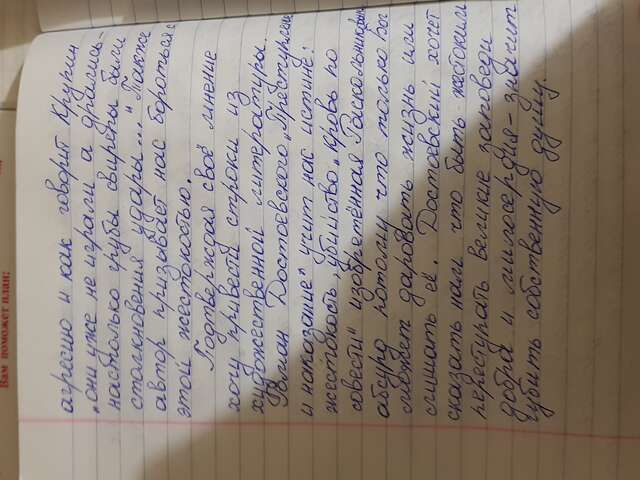 Вам поможет план:
агресию и как говорит Крупин
„они уже не играли а дрались-
настолько грубы свирепы были
столкновения удары..." Также
автор призывает нас бороться с
этой жестокостью.
Подтверждая своё мнение
хочу привести строки из
художественной литературы.
Роман Достоевского „Преступление
и наказание" учит нас истине:
жестокость, убийство „кровь по
совести" изобретённая Раскольниковым
абсурд потому что только Бог
может даровать жизнь или
лишать её. Достоевский хочет
сказать нам что быть жестоким
переступать великие заповеди
добра и милосердия - значит
губить собственную душу.